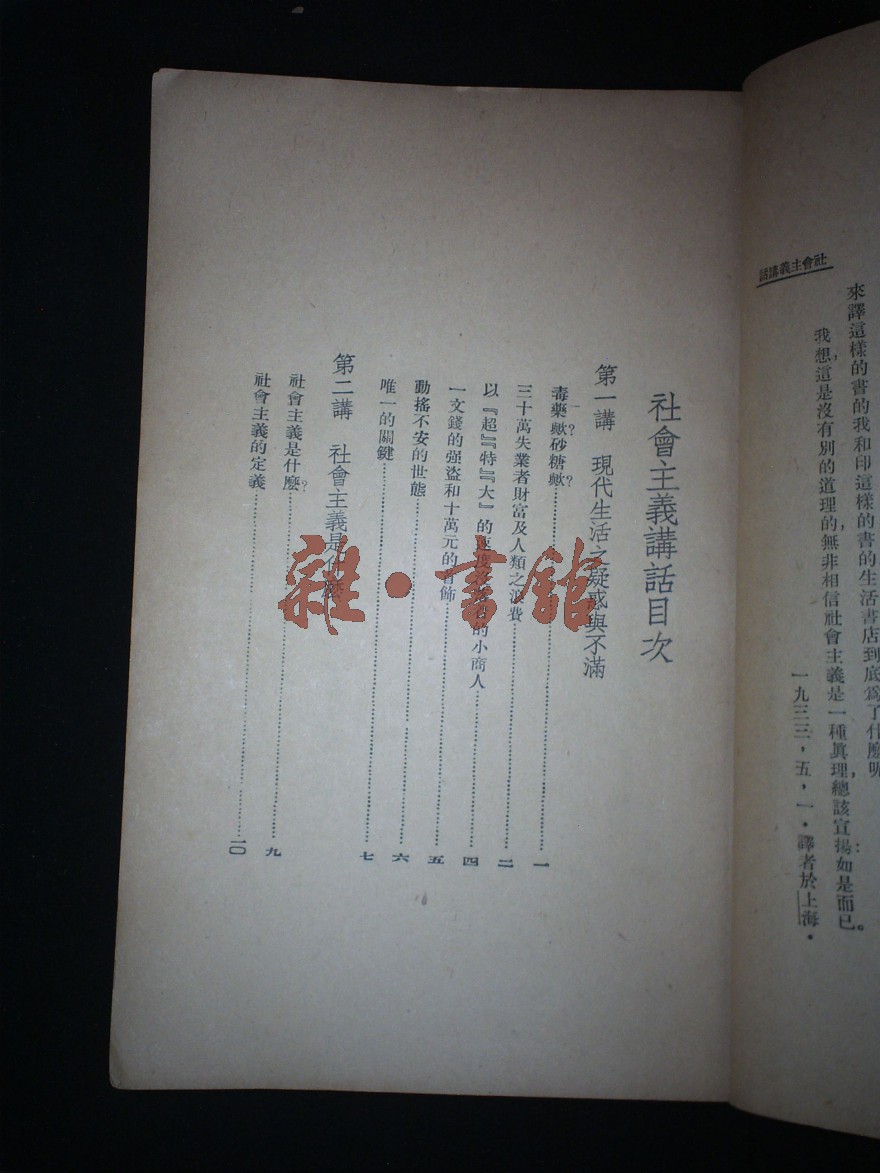 社會主義講話
來譯這樣的書的我和印這樣的書的生活書店到底爲了什麼呢
我想,這是沒有別的道理的,無非相信社會主義是一種眞理,總該宣揚:如是而已。
一九三三,五,一.譯者於上海.
社會主義講話目次
第一講 現代生活之疑惑與不滿
毒藥歟?砂糖歟?……一
三十萬失業者財富及人類之浪費……二
以『超』『特』『大』的速度 的小商人……四
一文錢的强盜和十萬元的首飾……五
動搖不安的世態……六
唯一的關鍵……七
第二講 社會主義是什麼
社會主義是什麼?……九
社會主義的定義……一〇
雜·書館